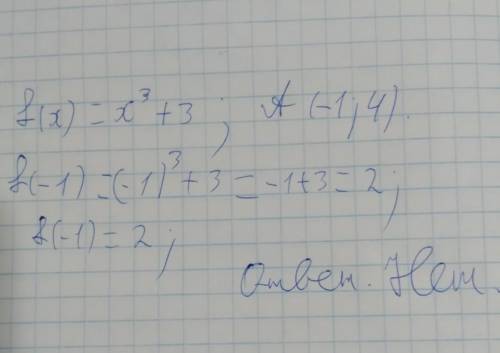 f(x) = x³ + 3 ; A (-1; 4).
f(-1) = (-1)³ + 3 = -1 + 3 = 2 ;
f(-1) = 2 ;
Ответ. Нет.